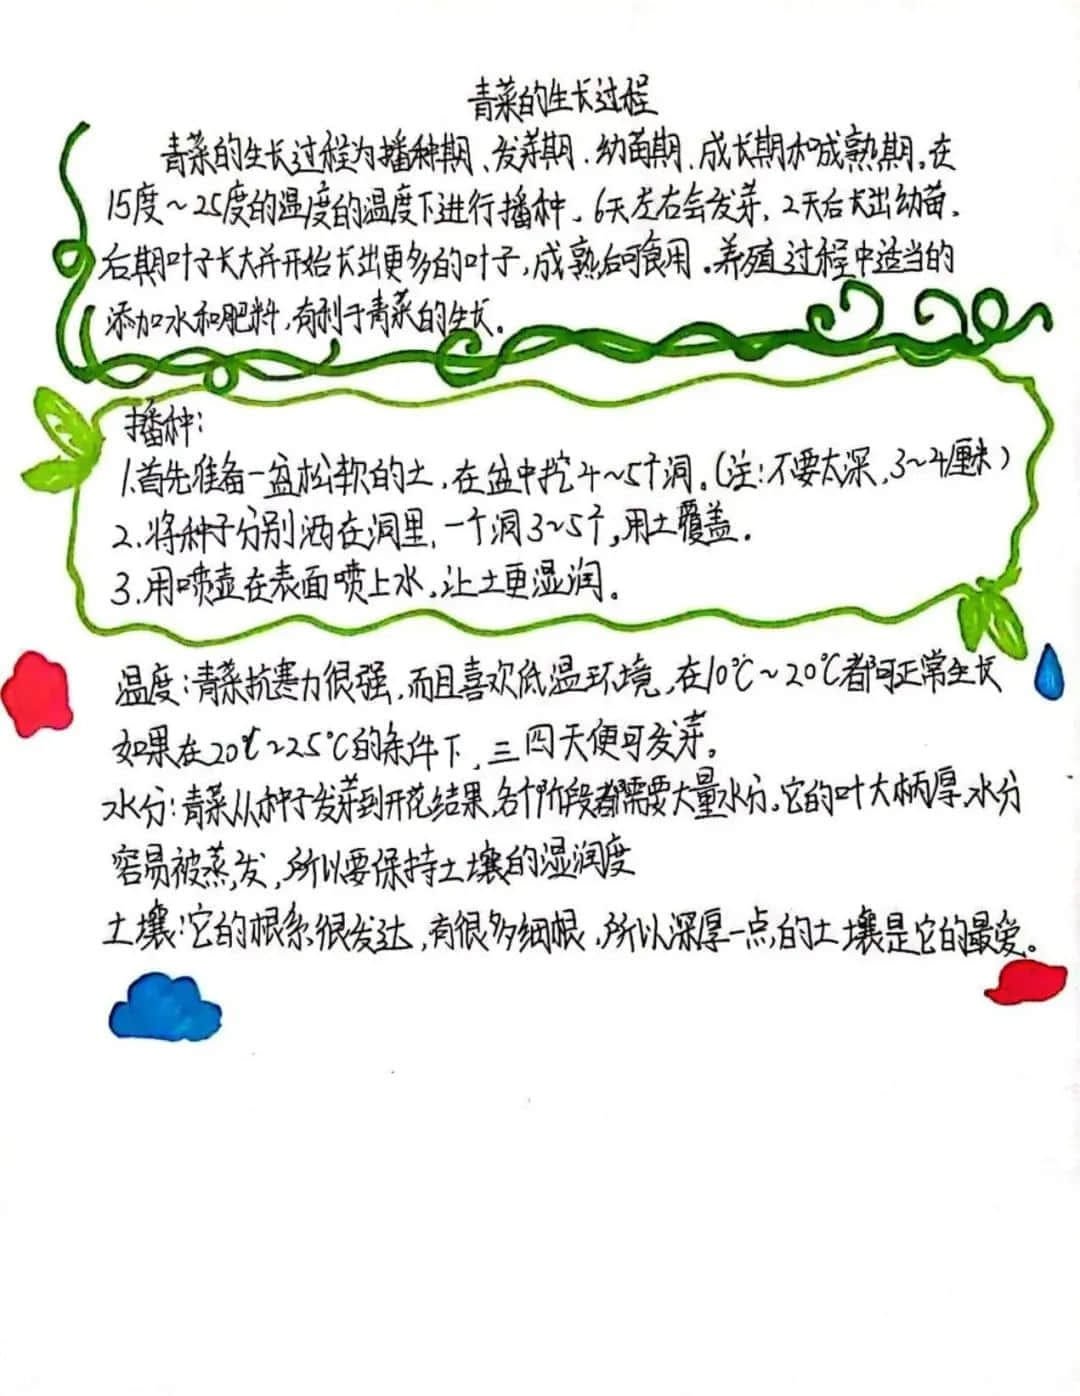 青菜的生长过程
青菜的生长过程为播种期、发芽期、幼苗期、成长期和成熟期。在
15度~25度的温度的温度下进行播种、6天左右会发芽、2天后长出幼苗、
后期叶子长大并开始长出更多的叶子,成熟后可食用。养殖过程中适当的
添加水和肥料,有利于青菜的生长。
播种:
1.首先准备一盆松软的土,在盆中挖4~5个洞。(注:不要太深,3~4厘米)
2.将种子分别洒在洞里,一个洞3~5个,用土覆盖。
3.用喷壶在表面喷上水,让土更湿润。
温度:青菜抗寒力很强,而且喜欢低温环境,在10℃~20℃都可正常生长
如果在20℃~25℃的条件下,三四天便可发芽。
水分:青菜从种子发芽到开花结果,各个阶段都需要大量水分。它的叶大柄厚,水分
容易被蒸发,所以要保持土壤的湿润度
土壤:它的根系很发达,有很多细根,所以深厚一点的土壤是它的最爱。